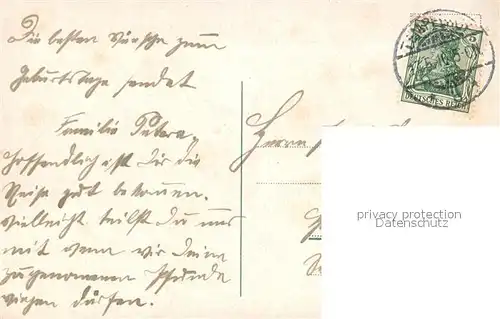 Die besten Wünsche zum
Geburtstage sendet
Familie
Hoffentlich ist Dir die
Reise gut bekommen.
Vielleicht teilst Du uns
mit wenn wir Deine
zugenommenen Pfunde
wiegen dürfen.
Herrn
DEUTSCHES REICH
privacy protection
Datenschutz